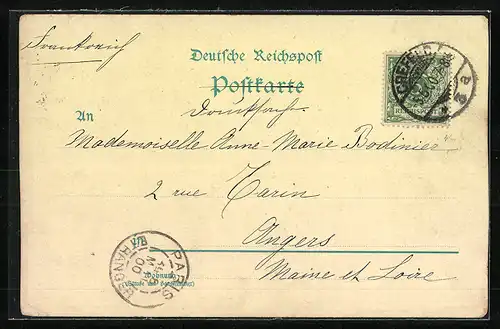 Frankreich
Deutsche Reichspost
Postkarte
Drucksache
An
Mademoiselle Anne-Marie Bodinier
2 rue Tarin
Angers
Maine et Loire
in
Wohnung
(Straße und Hausnummer)
CREFELD
a
PARIS
ETRANGER
00